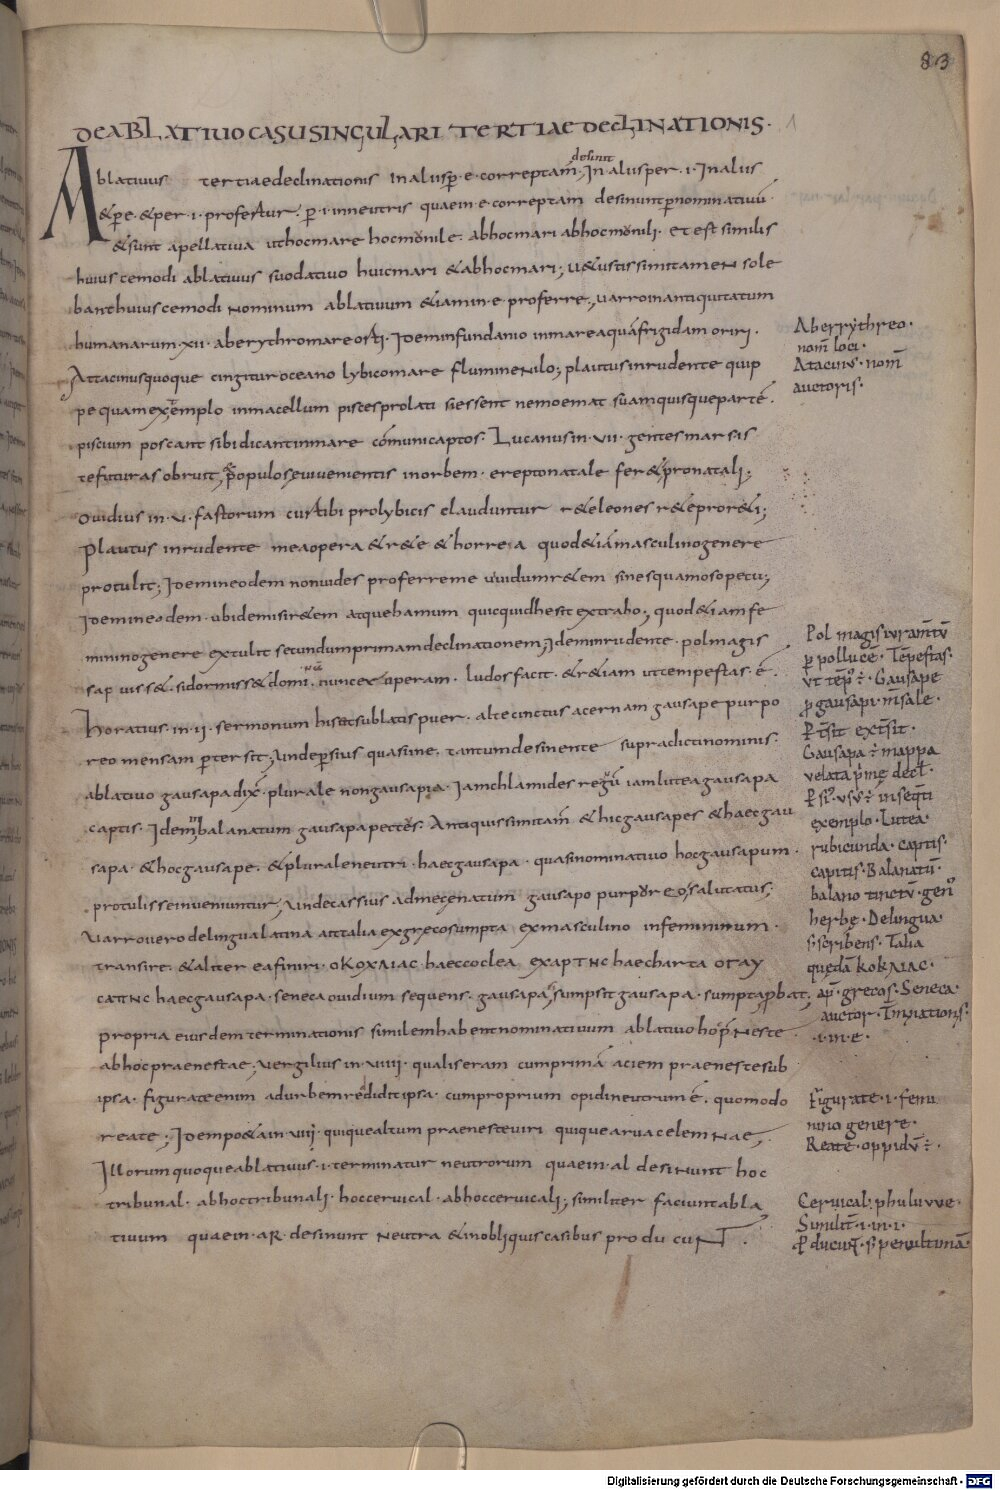 83
DE ABLATIUO CASU SINGULARI TERTIAE DECLINATIONIS·
desinit
Ablatiuus tertiae declinationis in aliis p̄·e·correptam; In aliis per·i· In aliis
& p̄ e· & per·i· profertur· p̄·i· in neutris quae in·e·correptam desinunt p̄ nominatiuū·
& sunt apellatiua ut hoc mare hoc monile· ab hoc mari ab hoc monili· et est similis
huiuscemodi ablatiuus suo datiuo huic mari & ab hoc mari; u&ustissimi tamen sole
bant huiuscemodi nominum ablatiuum &iam in·e· proferre; uarro in antiquitatum
humanarum·xii· ab erythro mare orti· Idem in fundanio in mare aquā frigidam oriri·
Attacinus quoque cingitur oceano lybico mare flumine nilo; plautus in rudente quip
pe quam extemplo in macellum pisces prolati sie ssent nemo emat suam quisque partē·
piscium poscant sibi dicant in mare cōmuni captos· Lucanus in·vii· gentes mar sis
te futuras obruit, populos eui uenientis in orbem· erepto natale fer& pro natali;
Ouidius in·v· fastorum cur tibi pro lybicis clauduntur r&e leones r&e pro r&i;
Plautus in rudente mea opera & r&e & horrea quod &iā masculino genere
protulit; Idem in eodem non uides proferre me uuidum r&em sine squamoso pecu;
Idem in eodem· ubi demisi r&em atque hamum quicquid hesit extraho; quod &iam fe
minino genere extulit secundum primam declinationem; Idem in rudente· pol magis
sap uiss&· si dormiss& domi· nunc ex operam· ludos facit· & r&iam ut tempestas·ē·
Horatius·in·ii· sermonum his ut sublatis puer· alte cinctus acernam gausape purpo
reo mensam p̄tersit; unde p̄sius quasi une· tantum desinente supradicti nominis·
ablatiuo gausapa dix̄· plurale non gausapia· Iam chlamides regū iam lutea gausapa
captis· Idem balanatum gausapa pectes· Antiquissimi tam̄ & hic gausapes & haec gau
sapa· & hoc gausape· & plurale neutri· haec gausapa· quasi nominatiuo hoc gausapum·
protulisse inueniuntur; unde cassius ad meçenatum gausapo purpureo salutatus;
Uarro uero de lingua latina ait talia ex greco sumpta ex masculino in femininum·
transire· & aliter ea finiri· ο ΚΟΧΛΙΑC haec coclea exapTHC haec charta ο ΓΑΥ
CAΠHC haec gausapa· seneca ouidium sequens· gausapa si sumpsit gausapa· sumpta p̄bat;
propria eiusdem terminationis similem habent nominatiuum ablatiuo hoc preneste·
ab hoc praenestae; uergilius in·viiii· qualis eram cum primā aciem praeneste sub
ipsa· figurate enim ad urbem reddidit ipsa· cum proprium opidi neutrum ē· quomodo
reate; Idem poeta in·viii· quique altum praeneste uiri quique arua celemnae;
Illorum quoque ablatiuus·i·terminatur neutrorum quae in·al desinunt hoc
tribunal· ab hoc tribunali· hoc ceruical· ab hoc ceruicali; similiter faciunt abla
tiuum quae in·AR·desinunt neutra & in obliquis casibus producunt·
Ab erythreo·
nom̄ loci·
Atacinus·nom̄
auctoris·
Pol magis iuram̄tū
p̄ pollucē· Tēpestas·
Gausape
p̄ gausapi·m̄sale·
P̄t̄sit ext̄sit·
Gausapa ē mappa
exemplo·Lutea·
rubicunda·captis·
capitis·Balanatū·
balano tinctū·gen
herbę·Delingua·
s̄ scribens·Talia
quędā ΚΟΚΛΙΑC·
ap̄·grecos·Seneca·
auctor·
·i·in·e·
Figurate·i·femi
nino genere·
Reate·oppidū ē·
Ceruical; phuluuve·
Similit̄·i·in·i·
p̄ducunt̄·s̄ penultimā·
Digitalisierung gefördert durch die Deutsche Forschungsgemeinschaft - DFG